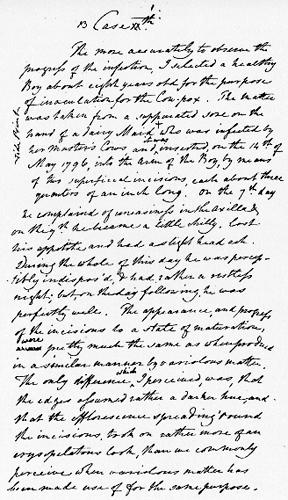 13 Case XXth.
The more accurately to observe the
progress of the infection, I selected a healthy
Boy about eight years old for the purpose
of inoculation for the Cow-pox. The matter
was taken from a suppurated sore on the
hand of a dairy Maid who was infected by
her Master's Cows and it was inserted, on the 14th of
May 1796, into the arm of the Boy, by means
of two superficial incisions, each about three
quarters of an inch long. On the 7th day
he complained of uneasiness in the axilla &
on the 9th he became a little chilly, lost
his appetite and had a slight head ach.
During the whole of this day he was percep-
tibly indispos'd, & had rather a restless
night; but on the day following, he was
perfectly well. The appearance, and progress
of the incisions to a state of maturation,
were pretty much the same as when produced
in a similar manner by variolous matter.
The only difference, which I perceived, was, that
the edges assumed rather a darker hue, and
that the efflorescence spreading round
the incisions, took on rather more of an
erysipelatous look, than we commonly
perceive when variolous matter has
been made use of for the same purpose.